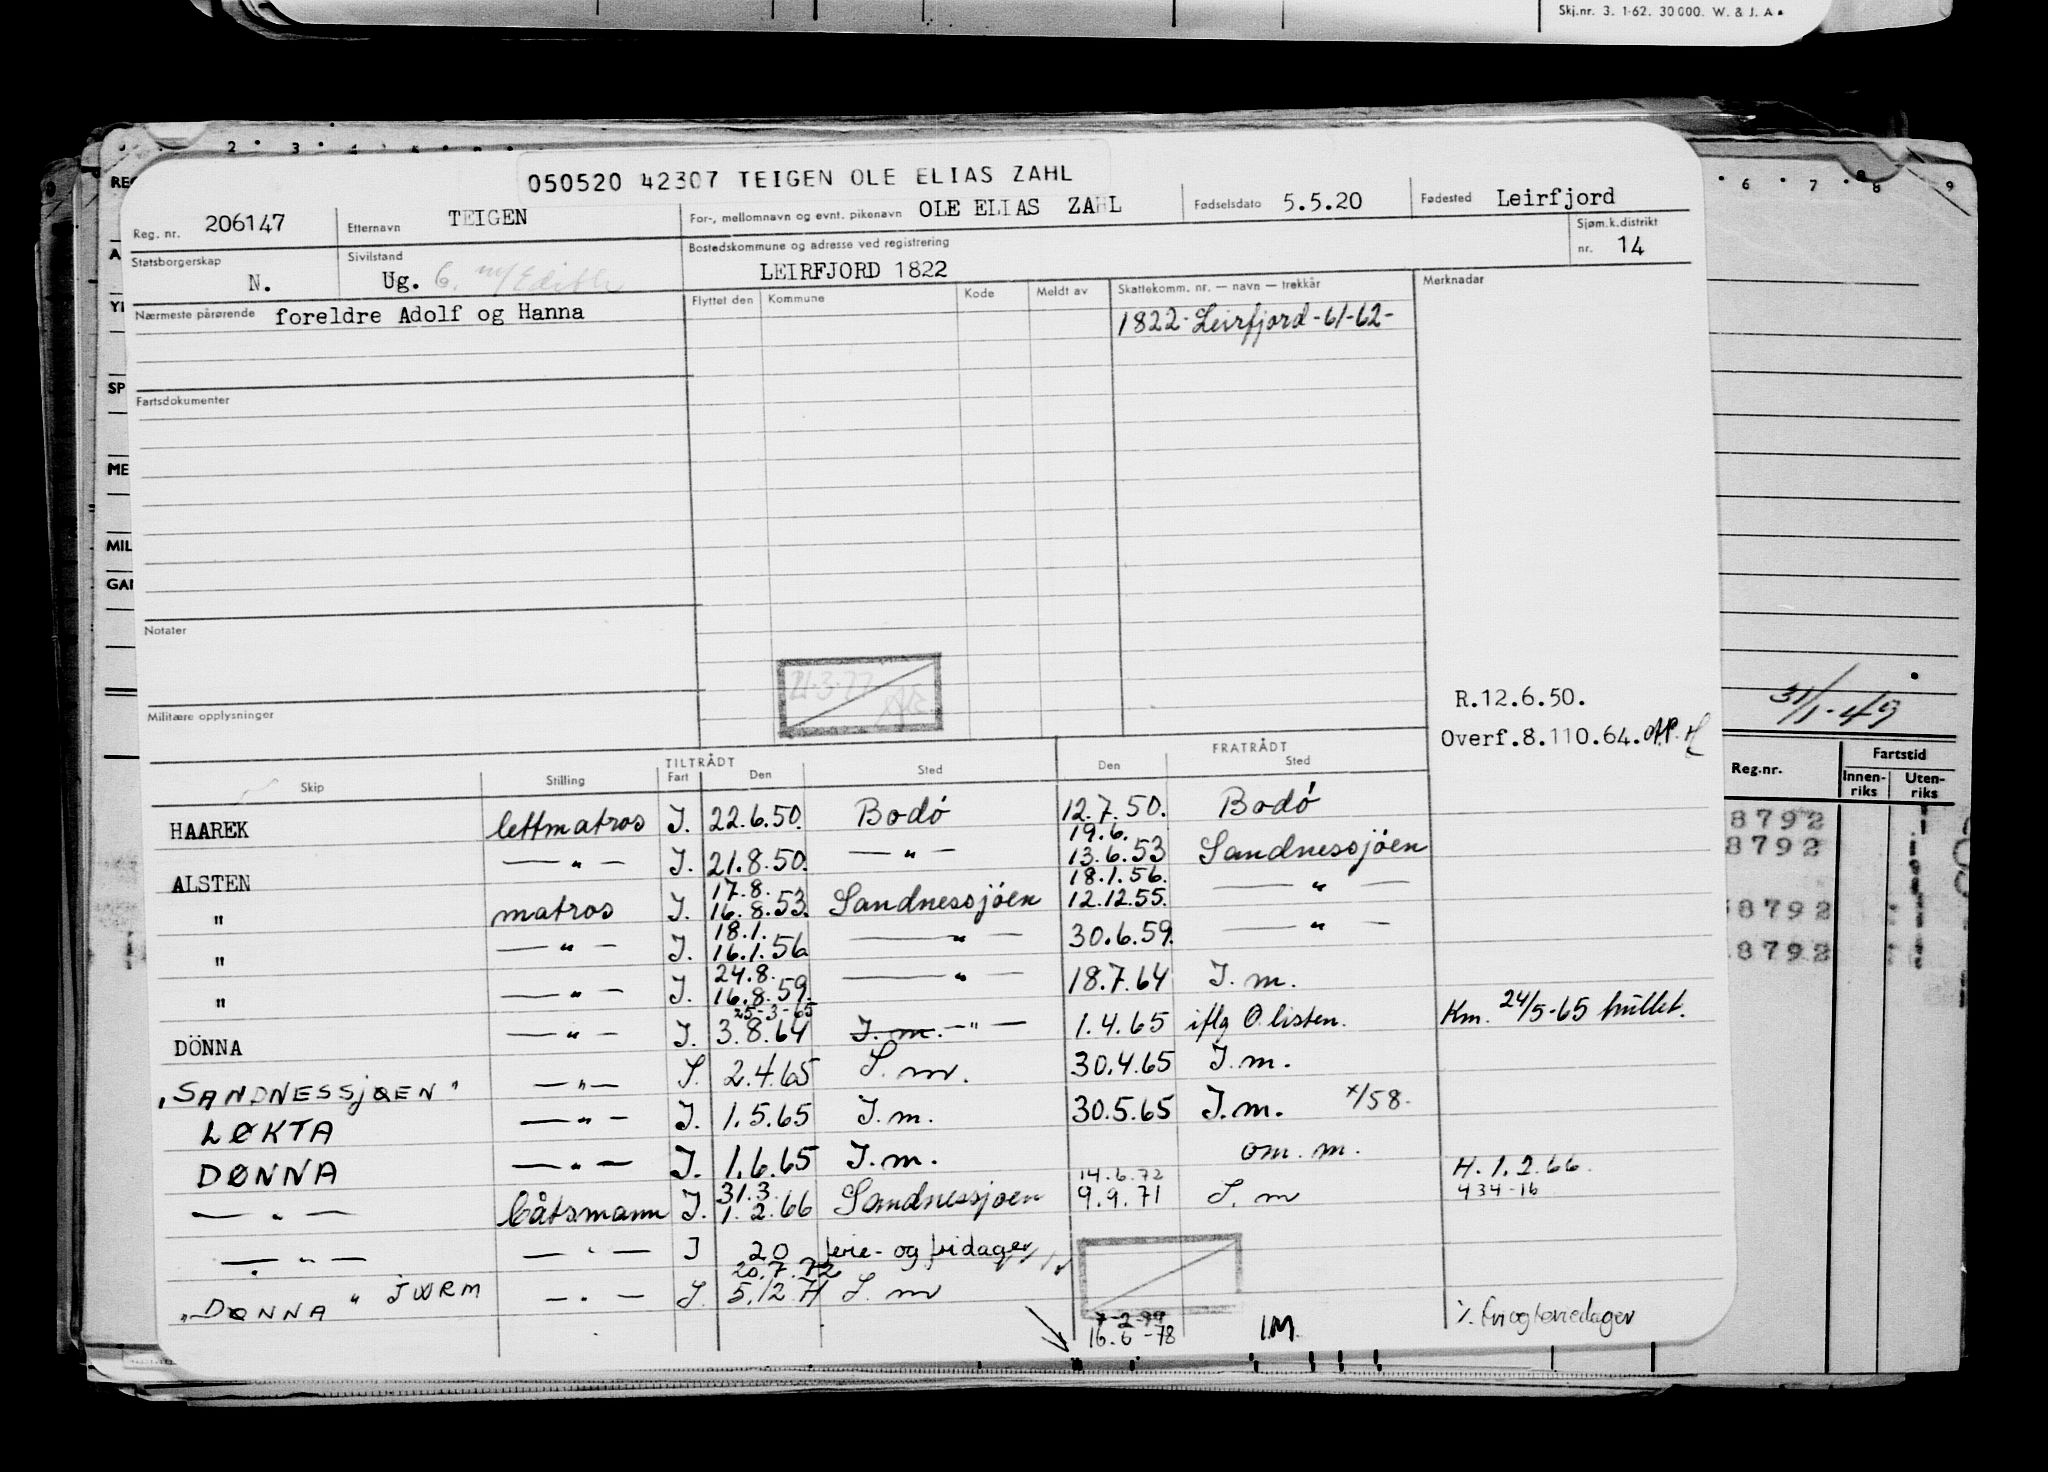 Skj.nr. 3. 1-62. 30000. W. & J. A.
2 3 4 6 7 8 9
050520 42307 TEIGEN OLE ELIAS ZAHL
Reg. nr. 206147 Etternavn TEIGEN For-, mellomnavn og evnt. pikenavn OLE ELIAS ZAHL Fødselsdato 5.5.20 Fødested Leirfjord
Statsborgerskap N. Sivilstand Ug. G. m/ Edith Bostedskommune og adresse ved registrering LEIRFJORD 1822 Sjøm.k.distrikt nr. 14
Nærmeste pårørende foreldre Adolf og Hanna Flyttet den Kommune Kode Meldt av Skattekomm. nr. — navn — trekkår Merknadar
1822-Leirfjord-61-62-
Fartsdokumenter
Notater
21-3-77
Militære opplysninger
R.12.6.50.
Overf.8.110.64.
31/1-49
TILTRÅDT FRATRÅDT
Skip Stilling Fart Den Sted Den Sted
Reg.nr. Fartstid
Innen-riks Uten-riks
HAAREK lettmatros I. 22.6.50. Bodó 12.7.50. Bodó
19.6.
ALSTEN — " — I. 21.8.50. — " — 13.6.53 Sandnessjöen
17.8. 18.1.56.
" matros I. 16.8.53. Sandnessjöen 12.12.55. — " —
18.1.
" — " — I. 16.1.56 — " — 30.6.59. — " —
24.8.
" — " — I. 16.8.59. — " — 18.7.64 I.m.
25-3-65
DÖNNA — " — I. 3.8.64 I.m. — " — 1.4.65 iflg O.listen. Km. 24/5-65 hullet.
"SANDNESSJØEN" — " — I. 2.4.65 I.m. 30.4.65 I.m.
LØKTA — " — I. 1.5.65 I.m. 30.5.65 I.m. x/58.
DØNNA — " — I. 1.6.65 I.m. om. m.
31.3. 14.6.72 H. 1.2.66.
— " — båtsmann I. 1.2.66 Sandnessjoen 9.9.71 I.m 434-16
— " — — " — I 20 ferie- og fridager
20.7.72
"DØNNA" — " — I. 5.12.71 I.m
7-2-79
16.6-78 I.M. %. fri og feriedager
8792
8792
8792
8792